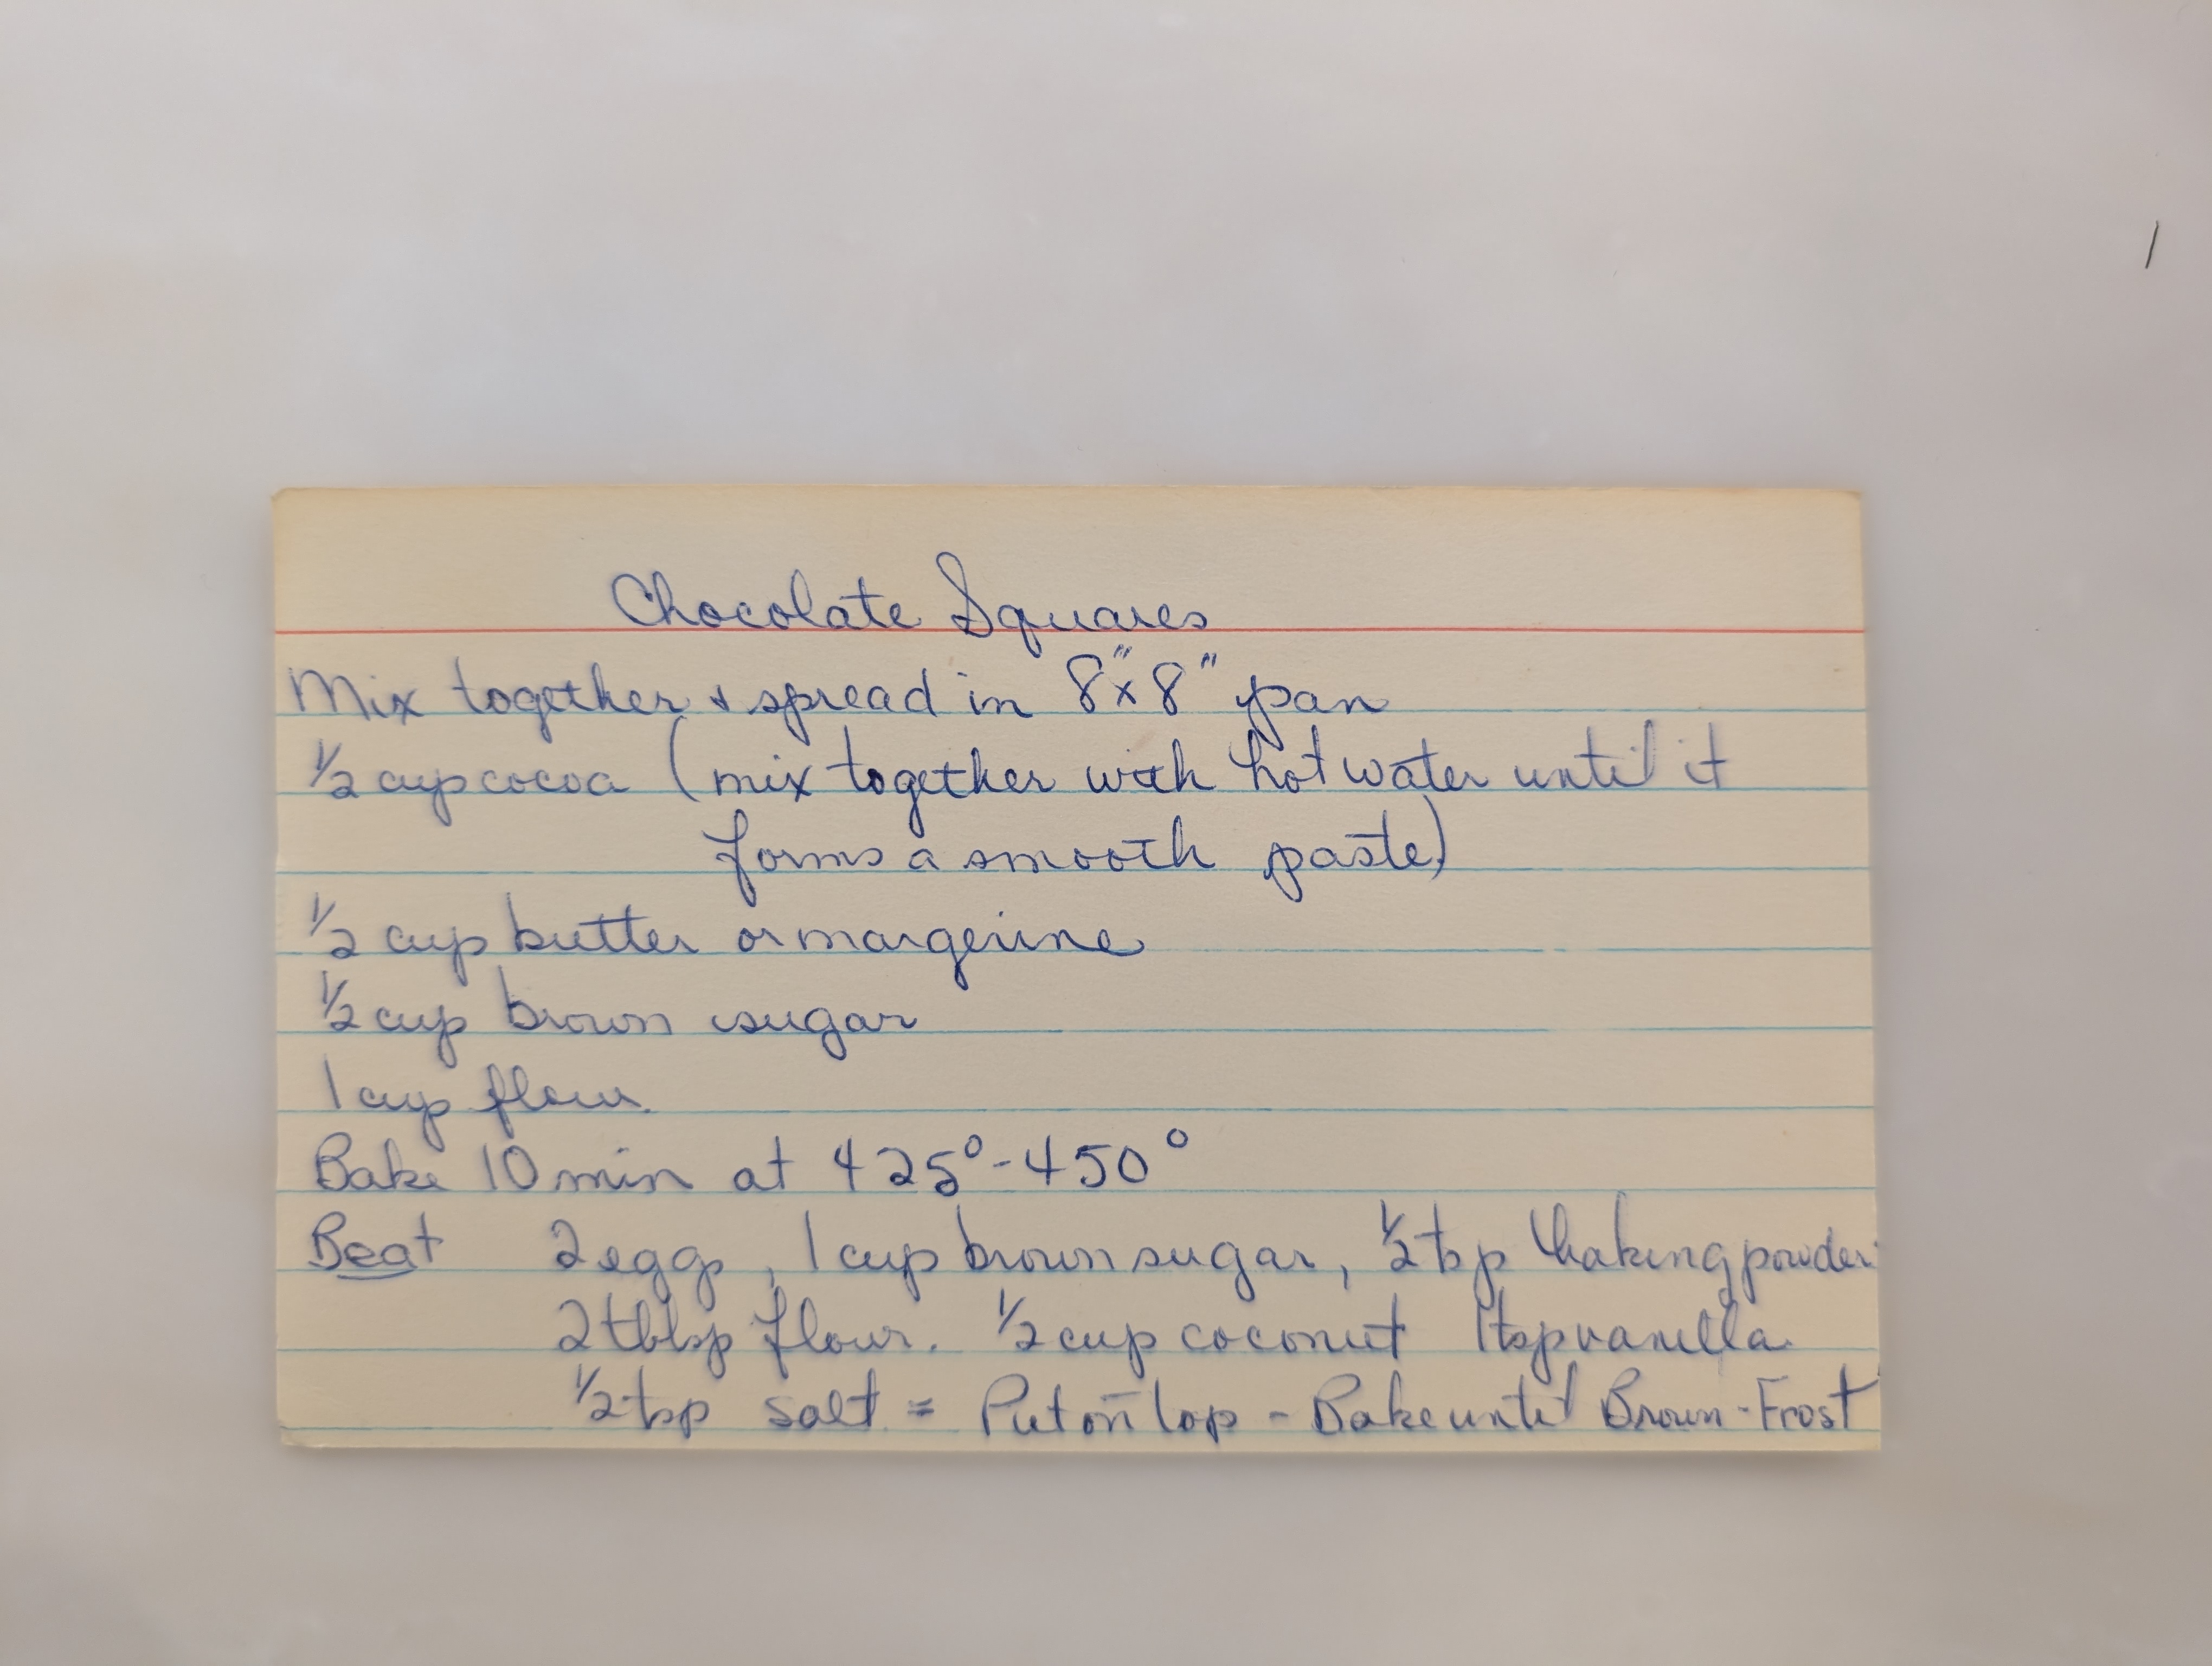 Chocolate Squares
Mix together & spread in 8"x8" pan
1/2 cup cocoa (mix together with hot water until it
forms a smooth paste)
1/2 cup butter or margerine
1/2 cup brown sugar
1 cup flour.
Bake 10 min at 425°-450°
Beat 2 eggs, 1 cup brown sugar, 1/2 tsp baking powder
2 tblsp flour. 1/2 cup coconut 1 tsp vanilla
1/2 tsp salt = Put on top - Bake until Brown - Frost